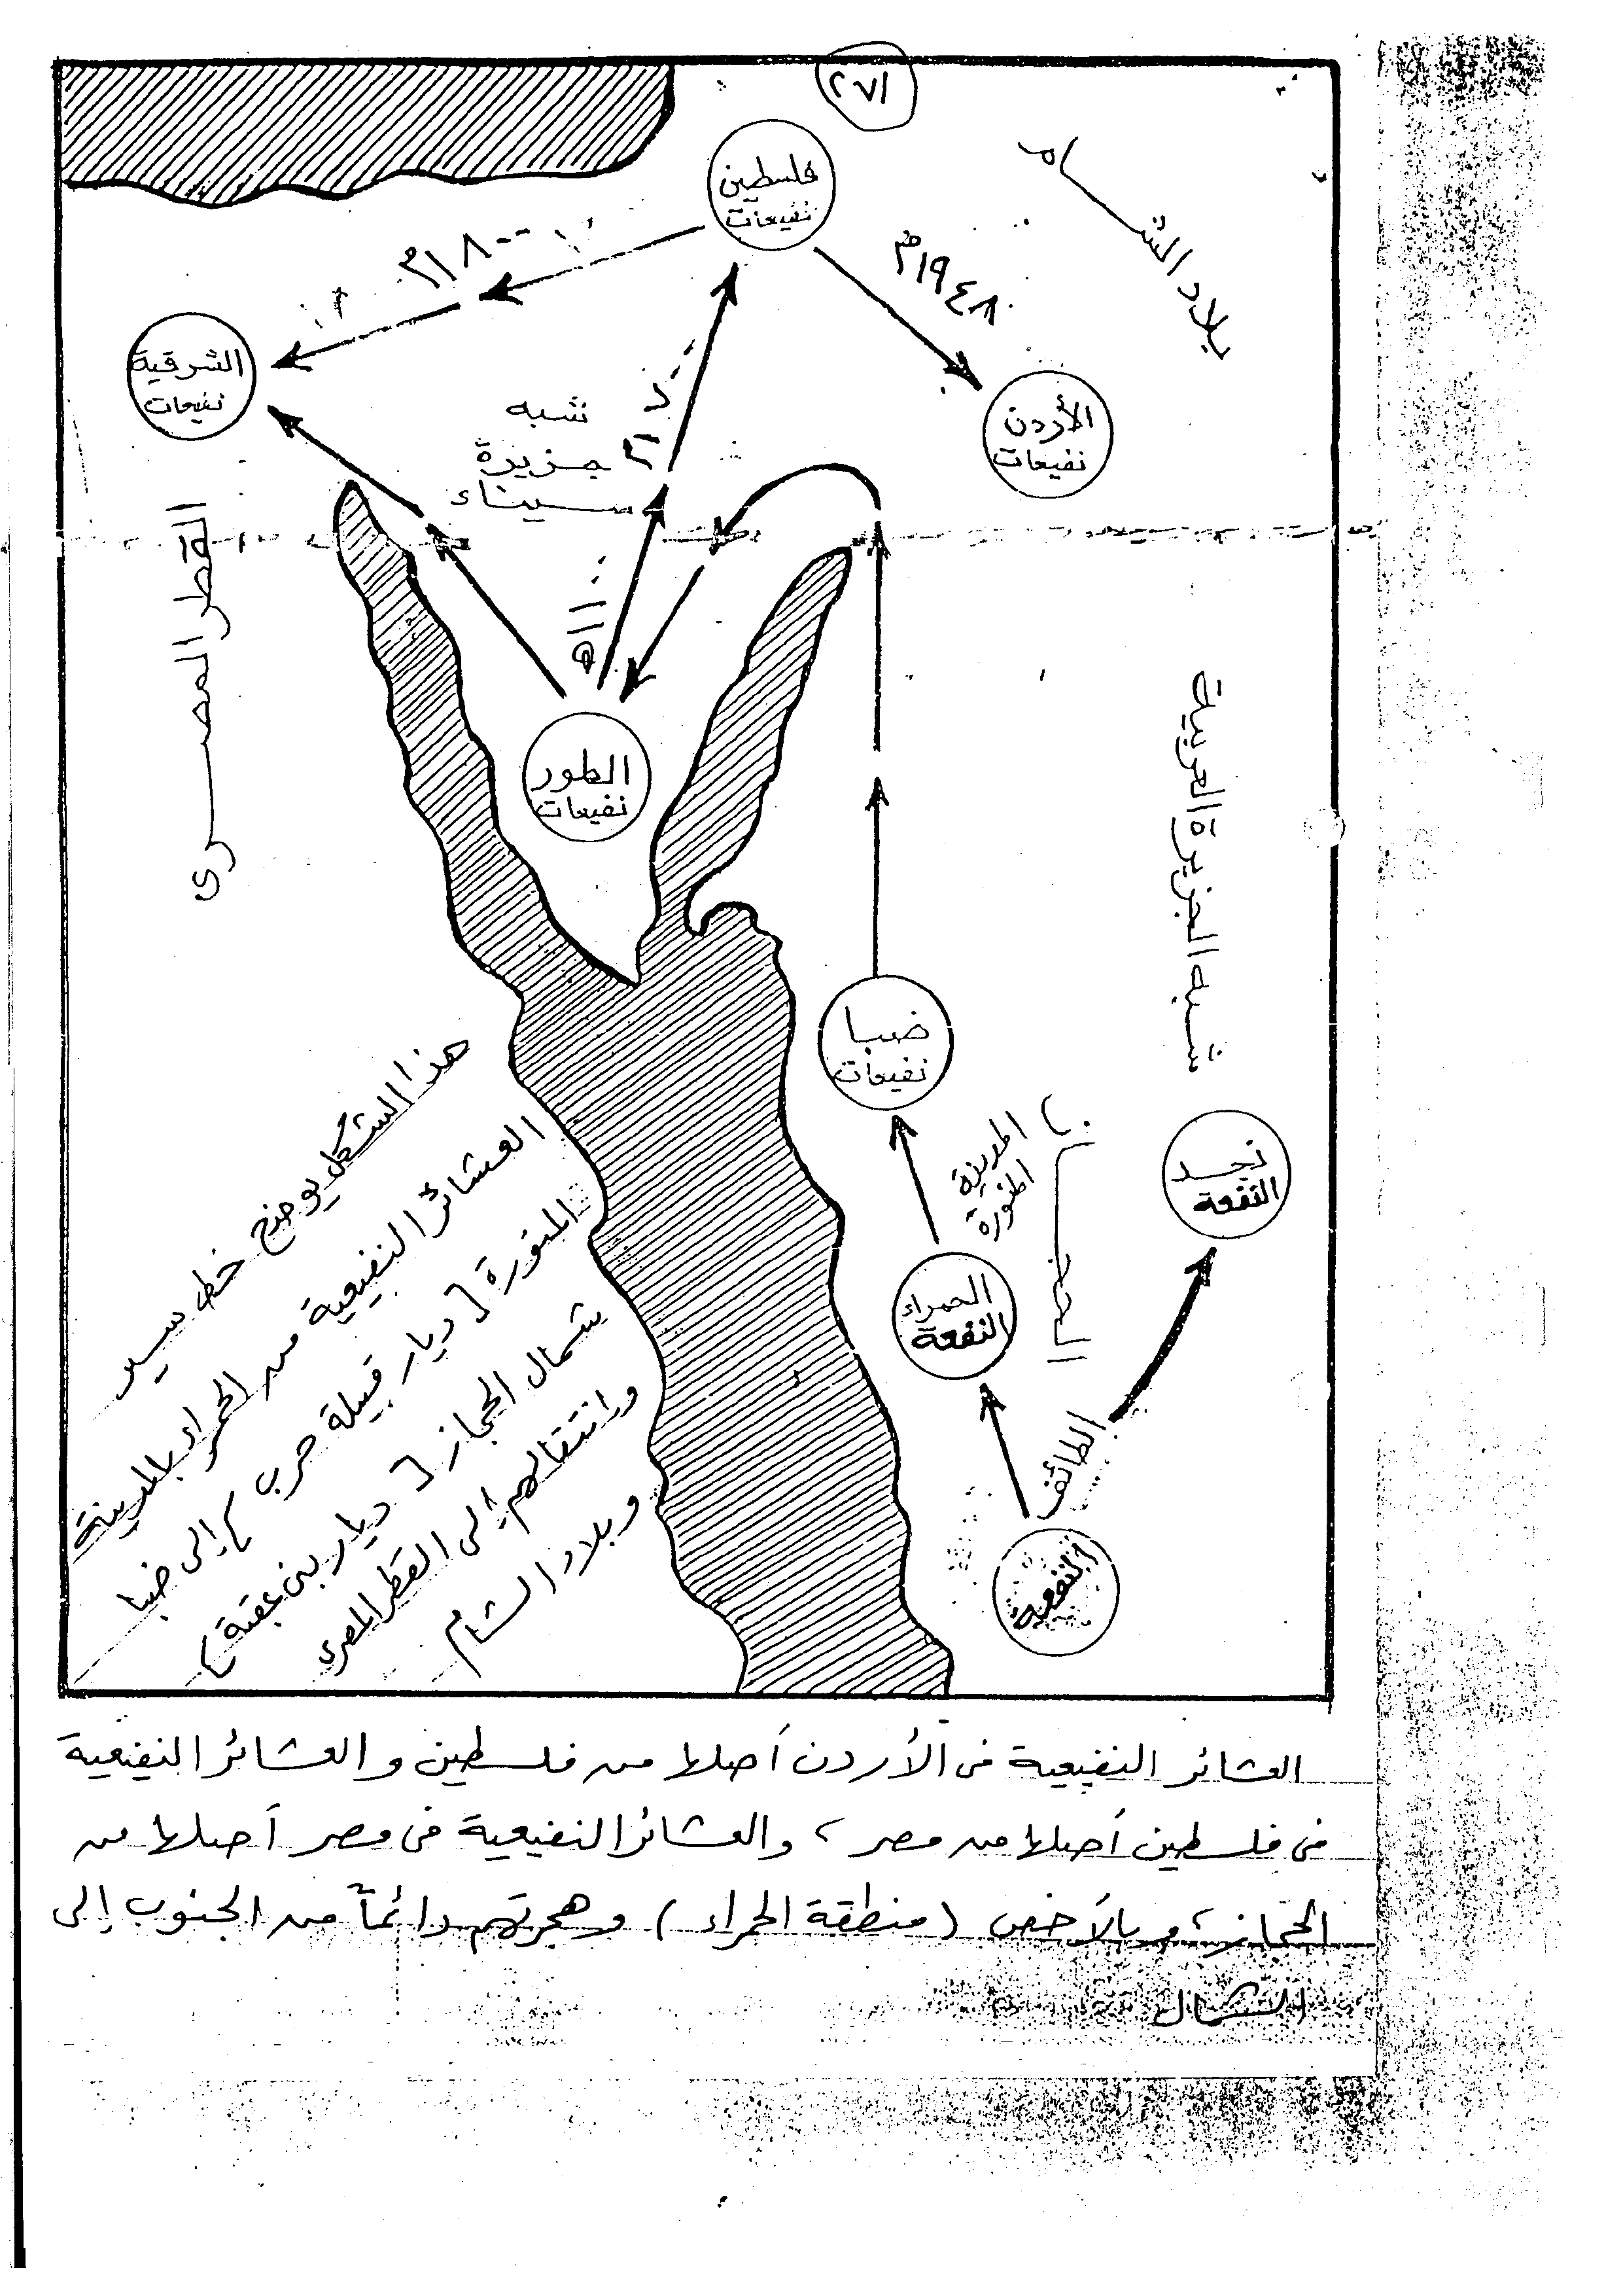 ٢٧١
بلاد الشام
فلسطين
نفيعات
١٩٤٨م
١٨٠٠م
الشرقية
نفيعات
الأردن
نفيعات
شبه
جزيرة
سيناء
القطر المصرى
١١٠٠هـ
شبه الجزيرة العربية
الطور
نفيعات
ضبا
نفيعات
المدينة
المنورة
الحجاز
نجد
النفعة
الحمراء
النفعة
الطائف
النفعة
هذا الشكل يوضح خط سير
العشائر النفيعية من الحمراء بالمدينة
المنورة [ ديار قبيلة حرب ] إلى ضبا
بشمال الحجاز [ ديار بنى عقبة ]
وانتقالهم إلى القطر المصري
وبلاد الشام
العشائر النفيعية فى الأردن أصلها من فلسطين والعشائر النفيعية
فى فلسطين أصلها من مصر ، والعشائر النفيعية فى مصر أصلها من
الحجاز ، وبالأخص (منطقة الحمراء) وهجرتهم دائماً من الجنوب إلى
الشمال